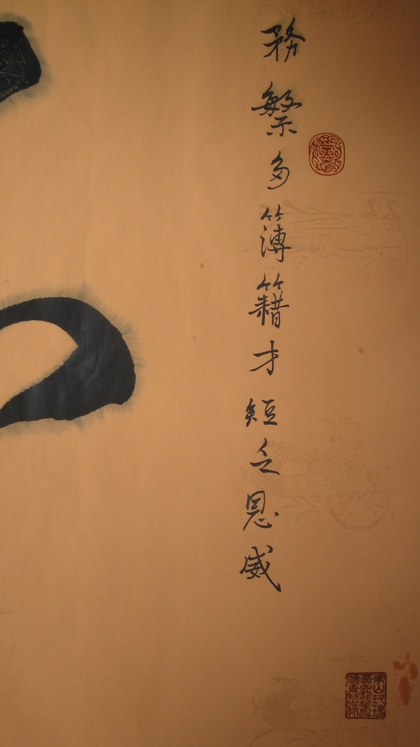 務繁多簿籍才短乏恩威